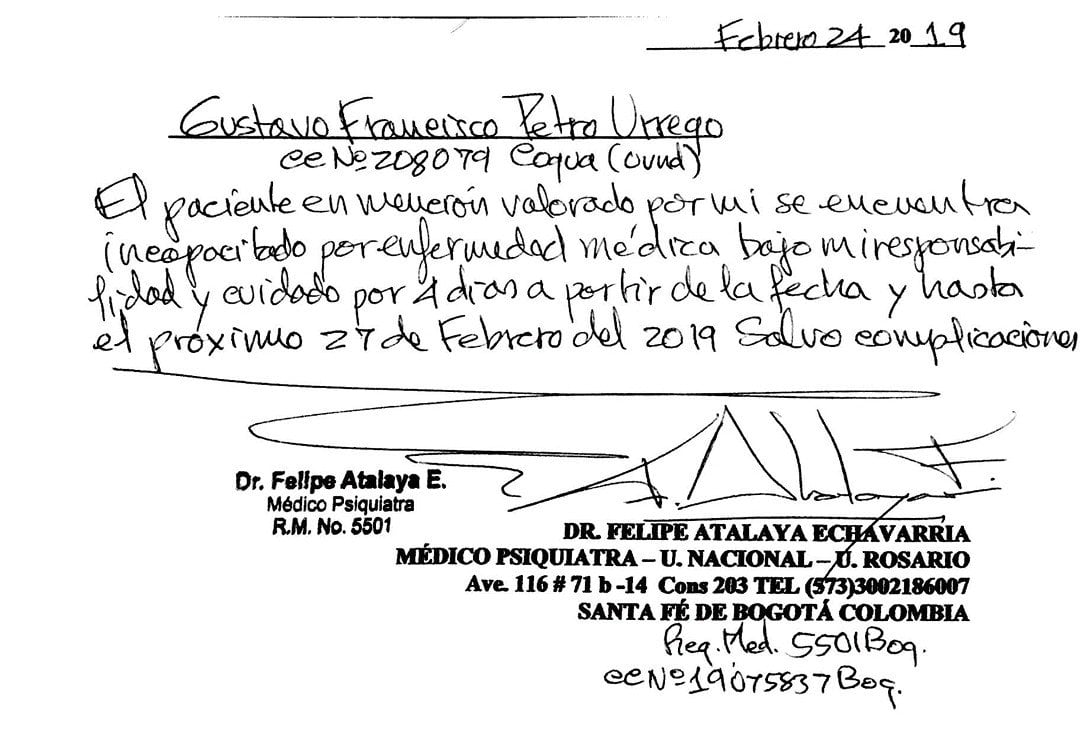 Febrero 24 2019
Gustavo Francisco Petro Urrego
cc Nº 208079 Cogua (Cund)
El paciente en mención valorado por mi se encuentra
incapacitado por enfermedad médica bajo mi responsabi-
lidad y cuidado por 4 dias a partir de la fecha y hasta
el próximo 27 de Febrero del 2019 Salvo complicaciones
Dr. Felipe Atalaya E.
Médico Psiquiatra
R.M. No. 5501
DR. FELIPE ATALAYA ECHAVARRÍA
MÉDICO PSIQUIATRA – U. NACIONAL – U. ROSARIO
Ave. 116 # 71 b -14 Cons 203 TEL (573)3002186007
SANTA FÉ DE BOGOTÁ COLOMBIA
Reg. Med. 5501 Bog.
cc Nº 19075837 Bog.